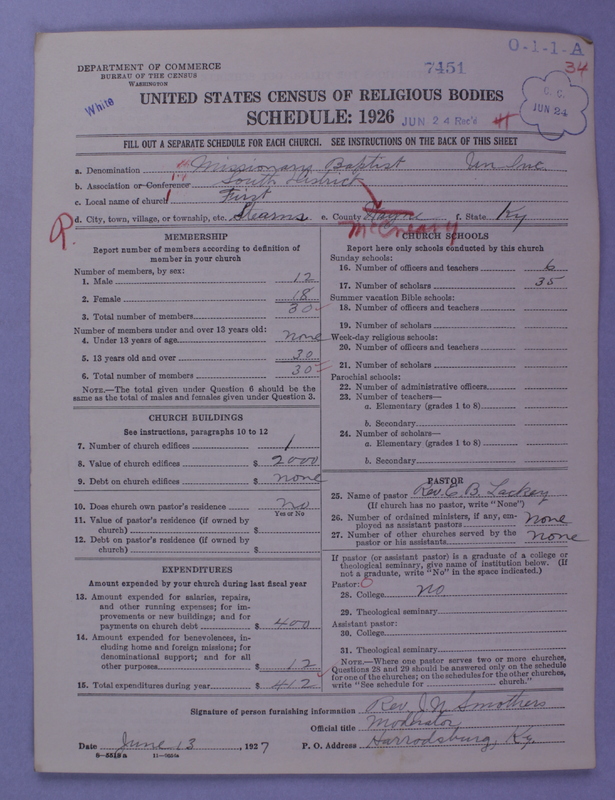 O-1-1-A
DEPARTMENT OF COMMERCE
BUREAU OF THE CENSUS
WASHINGTON
7451
34
White
C. C.
JUN 24
UNITED STATES CENSUS OF RELIGIOUS BODIES
SCHEDULE: 1926
JUN 24 Rec'd
FILL OUT A SEPARATE SCHEDULE FOR EACH CHURCH. SEE INSTRUCTIONS ON THE BACK OF THIS SHEET
a. Denomination Missionary Baptist
b. Association or Conference South District
c. Local name of church First
d. City, town, village, or township, etc. Stearns e. County Wayne f. State Ky
McCreary
MEMBERSHIP
Report number of members according to definition of
member in your church
Number of members, by sex:
1. Male 12
2. Female 18
3. Total number of members 30
Number of members under and over 13 years old:
4. Under 13 years of age none
5. 13 years old and over 30
6. Total number of members 30
NOTE.—The total given under Question 6 should be the
same as the total of males and females given under Question 3.
CHURCH BUILDINGS
See instructions, paragraphs 10 to 12
7. Number of church edifices 1
8. Value of church edifices $ 2000
9. Debt on church edifices $ none
10. Does church own pastor's residence no
Yes or No
11. Value of pastor's residence (if owned by
church) $
12. Debt on pastor's residence (if owned by
church) $
EXPENDITURES
Amount expended by your church during last fiscal year
13. Amount expended for salaries, repairs,
and other running expenses; for im-
provements or new buildings; and for
payments on church debt $ 400
14. Amount expended for benevolences, in-
cluding home and foreign missions; for
denominational support; and for all
other purposes $ 12
15. Total expenditures during year $ 412
CHURCH SCHOOLS
Report here only schools conducted by this church
Sunday schools:
16. Number of officers and teachers 6
17. Number of scholars 35
Summer vacation Bible schools:
18. Number of officers and teachers
19. Number of scholars
Week-day religious schools:
20. Number of officers and teachers
21. Number of scholars
Parochial schools:
22. Number of administrative officers
23. Number of teachers—
a. Elementary (grades 1 to 8)
b. Secondary
24. Number of scholars—
a. Elementary (grades 1 to 8)
b. Secondary
PASTOR
25. Name of pastor Rev. C. B. Lackey
(If church has no pastor, write "None")
26. Number of ordained ministers, if any, em-
ployed as assistant pastors none
27. Number of other churches served by the
pastor or his assistants none
If pastor (or assistant pastor) is a graduate of a college or
theological seminary, give name of institution below. (If
not a graduate, write "No" in the space indicated.)
Pastor:
28. College no
29. Theological seminary
Assistant pastor:
30. College
31. Theological seminary
NOTE.—Where one pastor serves two or more churches,
Questions 28 and 29 should be answered only on the schedule
for one of the churches; on the schedules for the other churches,
write "See schedule for church."
Signature of person furnishing information Rev. J. N. Smothers
Official title Moderator
Date June 13, 1927 P. O. Address Harrodsburg, Ky.